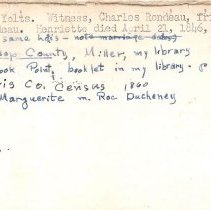 Yolts. Witness, Charles Rondeau, Fr
eau. Henriette died April 21, 1846,
same heis - note marriage date)
sap County, Miller, my library
ook Point, booklet in my library. p
is Co. Census 1860
Marguerite m. Roc Ducheney